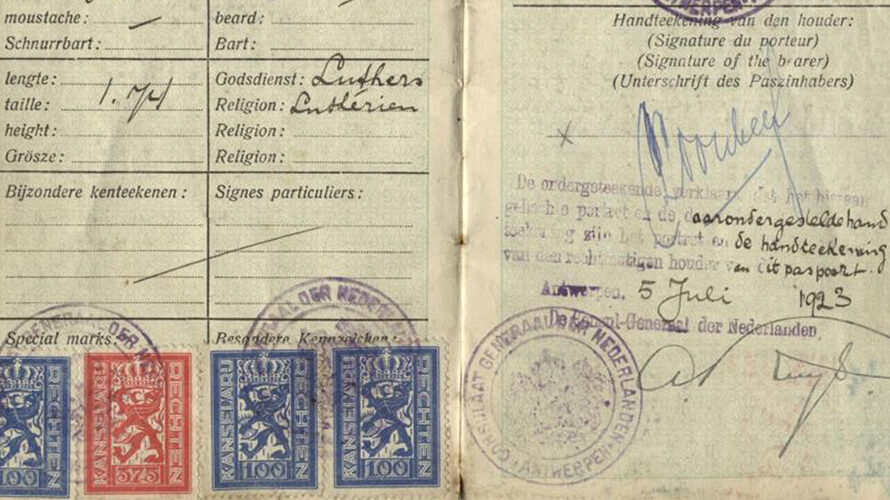 moustache:
Schnurrbart:
lengte:
taille: 1.74
height:
Grösze:
Bijzondere kenteekenen:
Special marks:
beard:
Bart:
Godsdienst: Luthers
Religion: Luthérien
Religion:
Religion:
Signes particuliers:
Besondere Kennzeichen:
KANSELARIJ RECHTEN 1.00
KANSELARIJ RECHTEN 3.75
KANSELARIJ RECHTEN 1.00
KANSELARIJ RECHTEN 1.00
ANTWERPEN
Handteekening van den houder:
(Signature du porteur)
(Signature of the bearer)
(Unterschrift des Paszinhabers)
De ondergeteekende verklaart dat het hieraan
gehechte portret en de daaronder gestelde hand
teekening zijn het portret en de handteekening
van den rechtmatigen houder van dit paspoort.
Antwerpen, 5 Juli 1923
De Consul-Generaal der Nederlanden
CONSULAAT GENERAAL DER NEDERLANDEN
ANTWERPEN